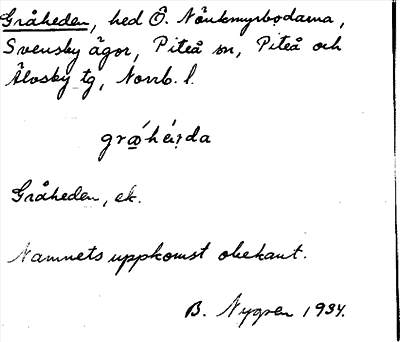 Gråheden, hed Ö. Nöukmyrbodarna,
Svensby ägor, Piteå sn, Piteå och
Älvsby tg, Norrb. l.
Gråheden, ek.
Namnets uppkomst obekant.
B. Nygren 1934.